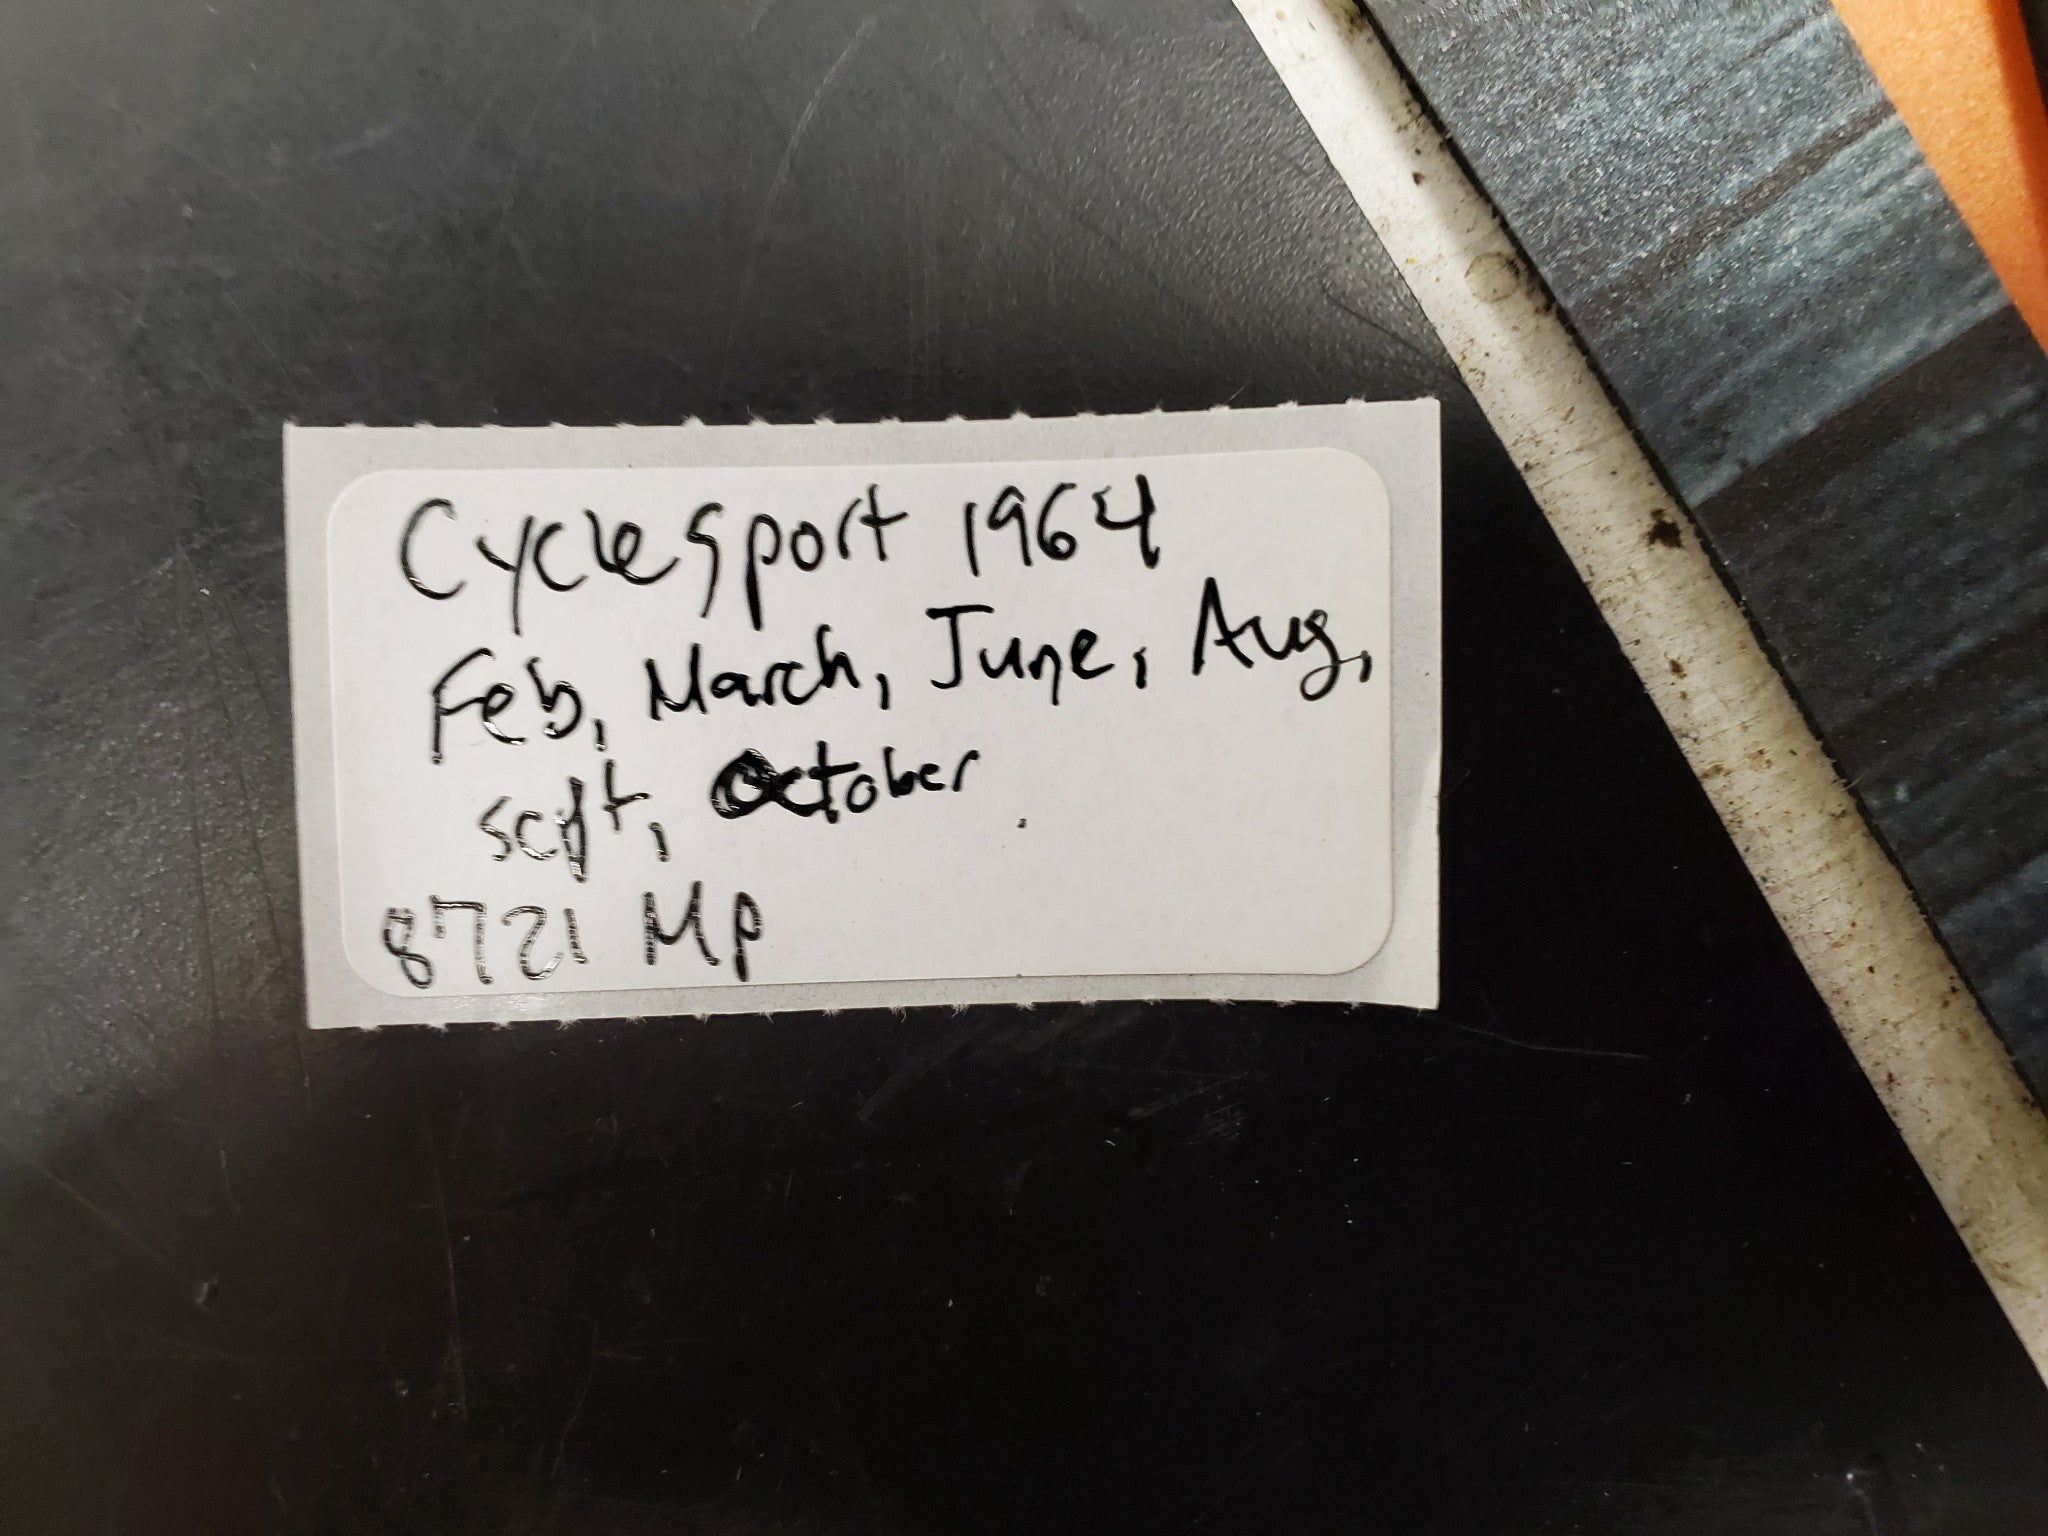 Cycle Sport 1964
Feb, March, June, Aug,
sept, October
8721 MP